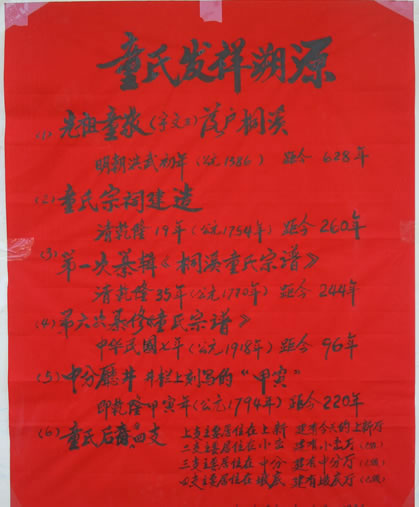 童氏发祥溯源
(1) 先祖童敬(字文工)落户桐溪
明朝洪武初年(公元1386) 距今628年
(2) 童氏宗祠建造
清乾隆19年(公元1754年) 距今260年
(3) 第一次纂辑《桐溪童氏宗谱》
清乾隆35年(公元1770年) 距今244年
(4) 第六次纂修《童氏宗谱》
中华民国七年(公元1918年) 距今96年
(5) 中分厅井 井栏上刻写的“甲寅”
即乾隆甲寅年(公元1794年) 距今220年
(6) 童氏后裔四支
上支主要居住在上新 建有今天的上新厅
二支主要居住在小 建有小厅
三支主要居住在中分 建有中分厅
四支主要居住在坡底 建有坡底厅